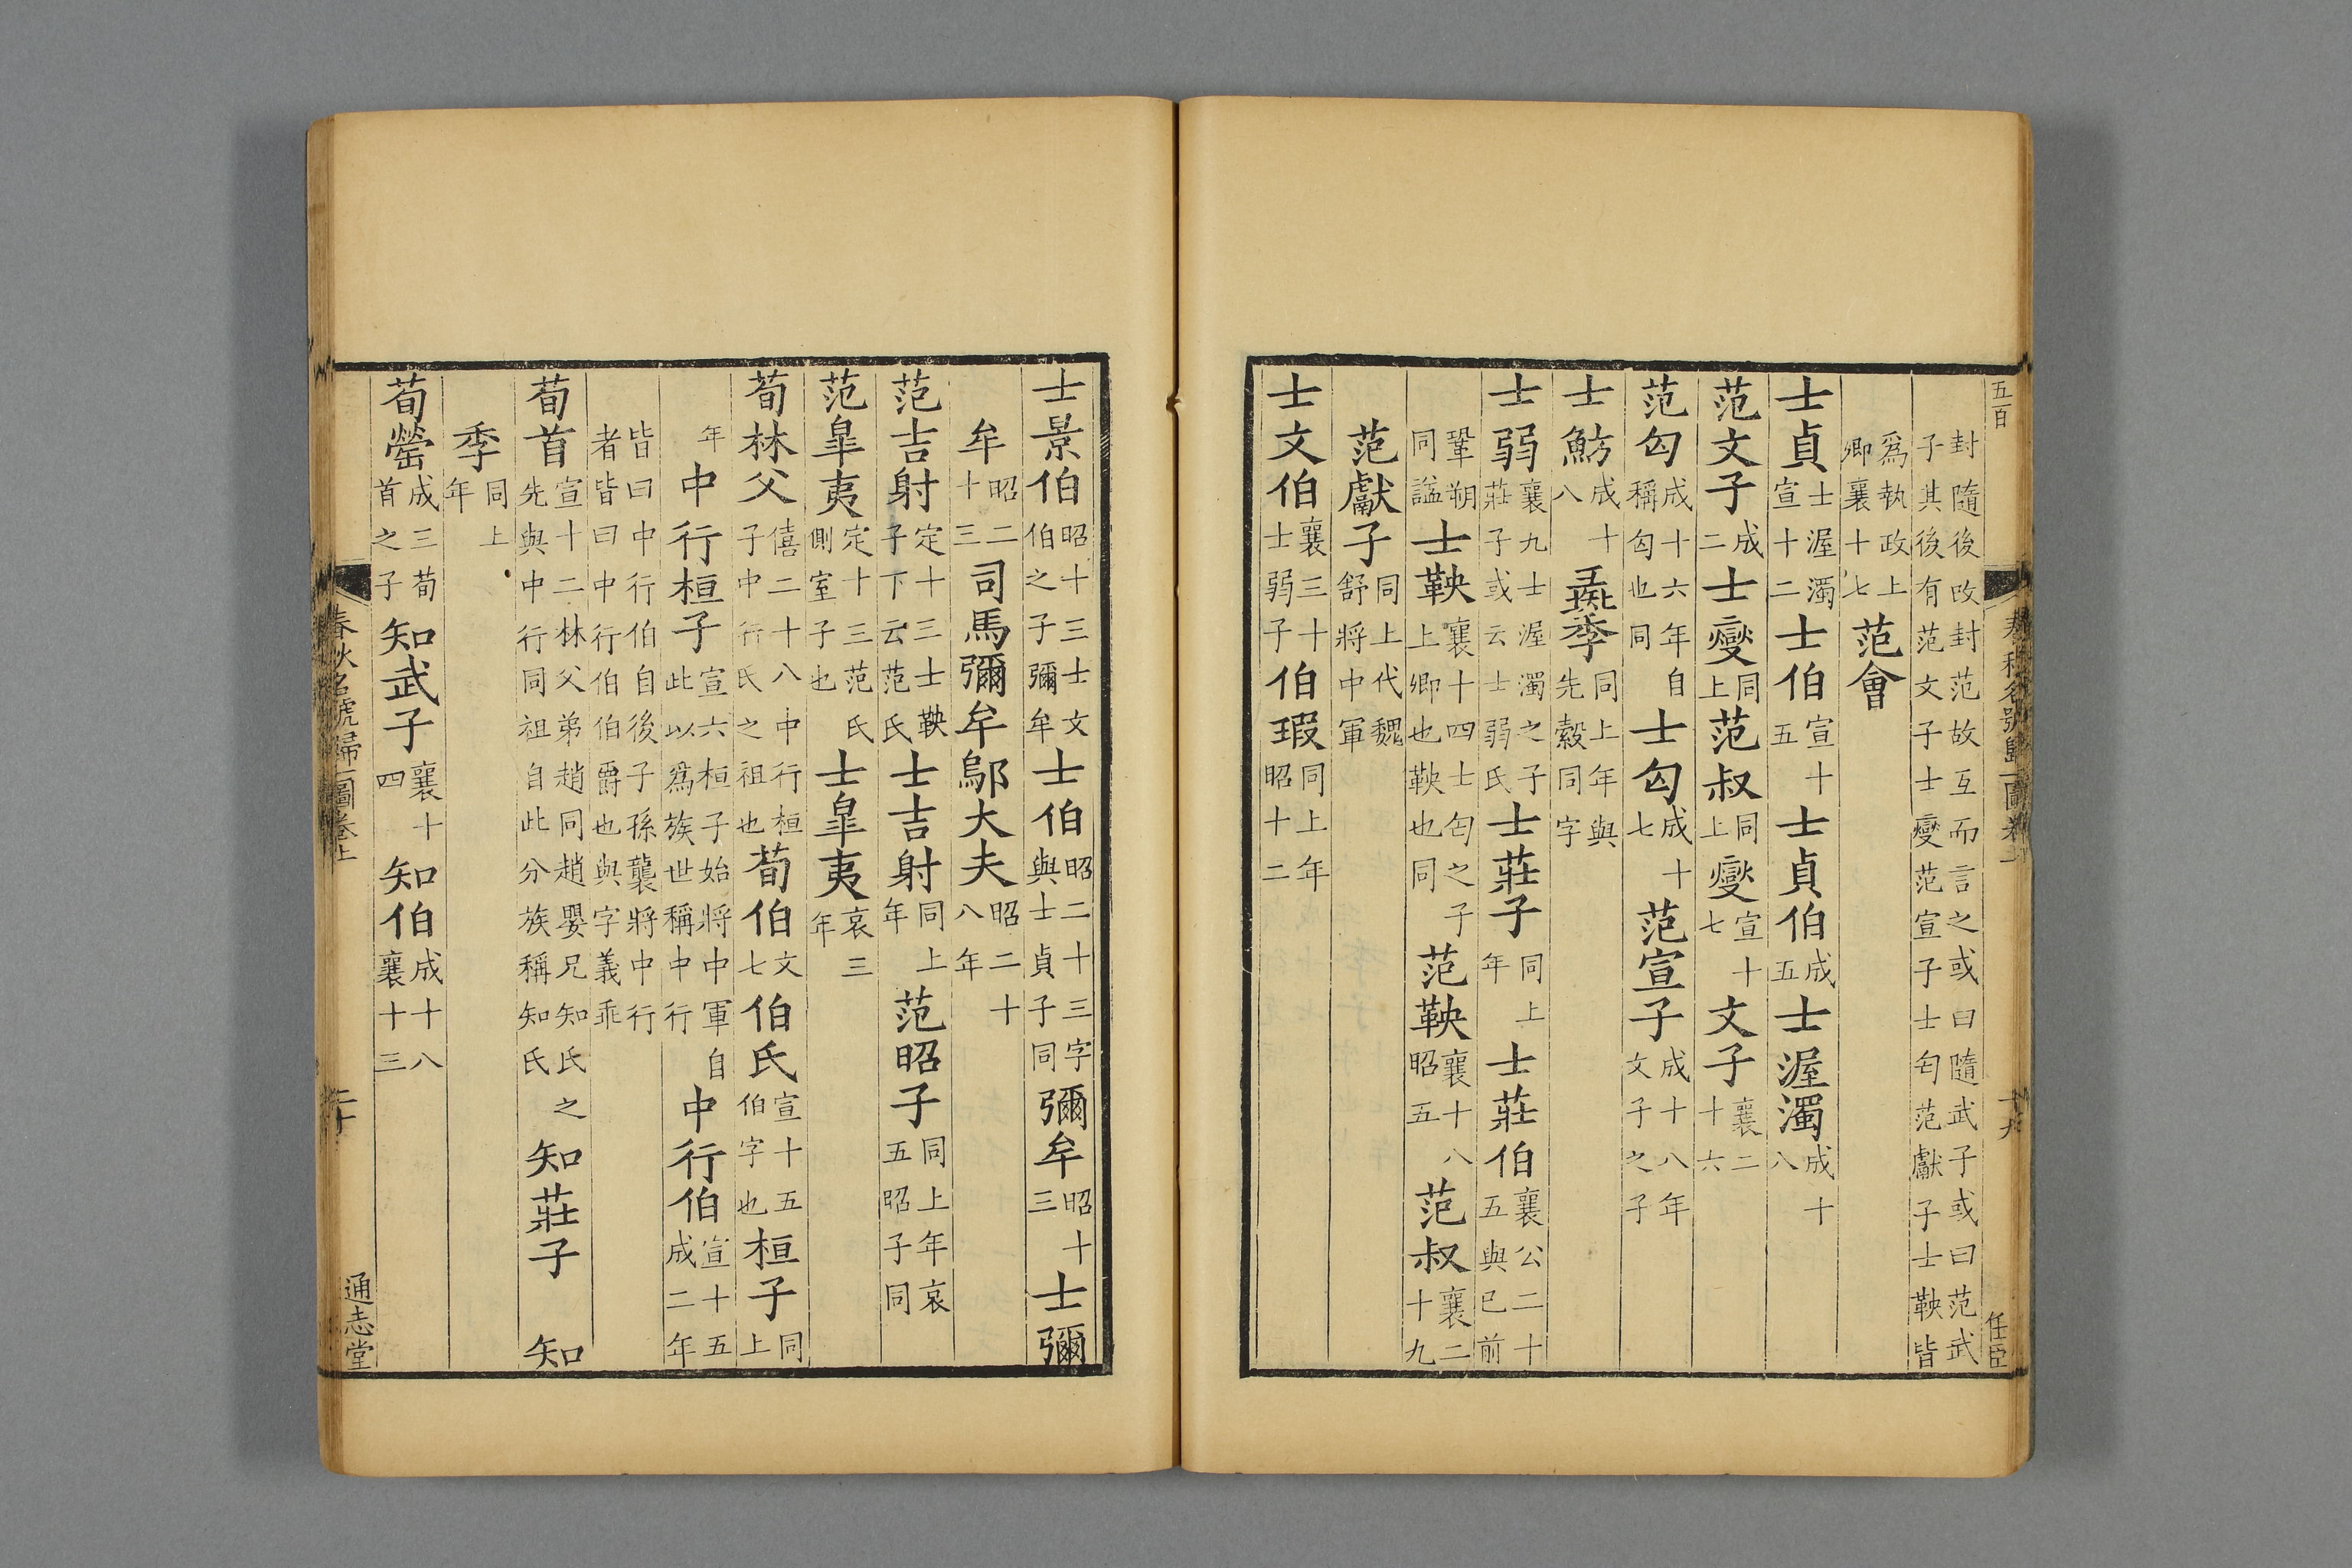 五百 春秋名號歸一圖卷上 十九 任臣
封隨後改封范故互而言之或曰隨武子或曰范武
子其後有范文子士燮范宣子士匄范獻子士鞅皆
爲執政上卿襄十七范會
士貞士渥濁宣十二士伯宣十五士貞伯成五士渥濁成十八
范文子成二士燮同上范叔同上燮宣十七文子襄二十六
范匄成十六年自稱匄也同士匄成十七范宣子成十八年文子之子
士魴成十八彘季同上年與先縠同字
士弱襄九士渥濁之子莊子或云士弱氏士莊子同上年士莊伯襄公二十五與已前
鞏朔同謚士鞅襄十四士匄之子上卿也鞅也同范鞅襄十八昭五范叔襄二十九
范獻子同上代魏舒將中軍
士文伯襄三十士弱子伯瑕同上年昭十二
士景伯昭十三士文伯之子彌牟士伯昭二十三字與士貞子同彌牟昭十三士彌
牟昭二十三司馬彌牟鄔大夫昭二十八年
范吉射定十三士鞅子下云范氏士吉射同上年范昭子同上年哀五昭子同
范臯夷定十三范氏側室子也士臯夷哀三年
荀林父僖二十八中行桓子中行氏之祖也荀伯文七伯氏宣十五伯字也桓子同上
年中行桓子宣六桓子始將中軍自此以爲族世稱中行中行伯宣十五成二年
皆曰中行伯自後子孫襲將中行者皆曰中行伯伯爵也與字義乖
荀首宣十二林父弟趙同趙嬰兄知氏之先與中行同祖自此分族稱知氏知莊子 知
季同上年
荀罃成三荀首之子知武子襄十四知伯成十八襄十三
春秋名號歸一圖卷上 二十 通志堂